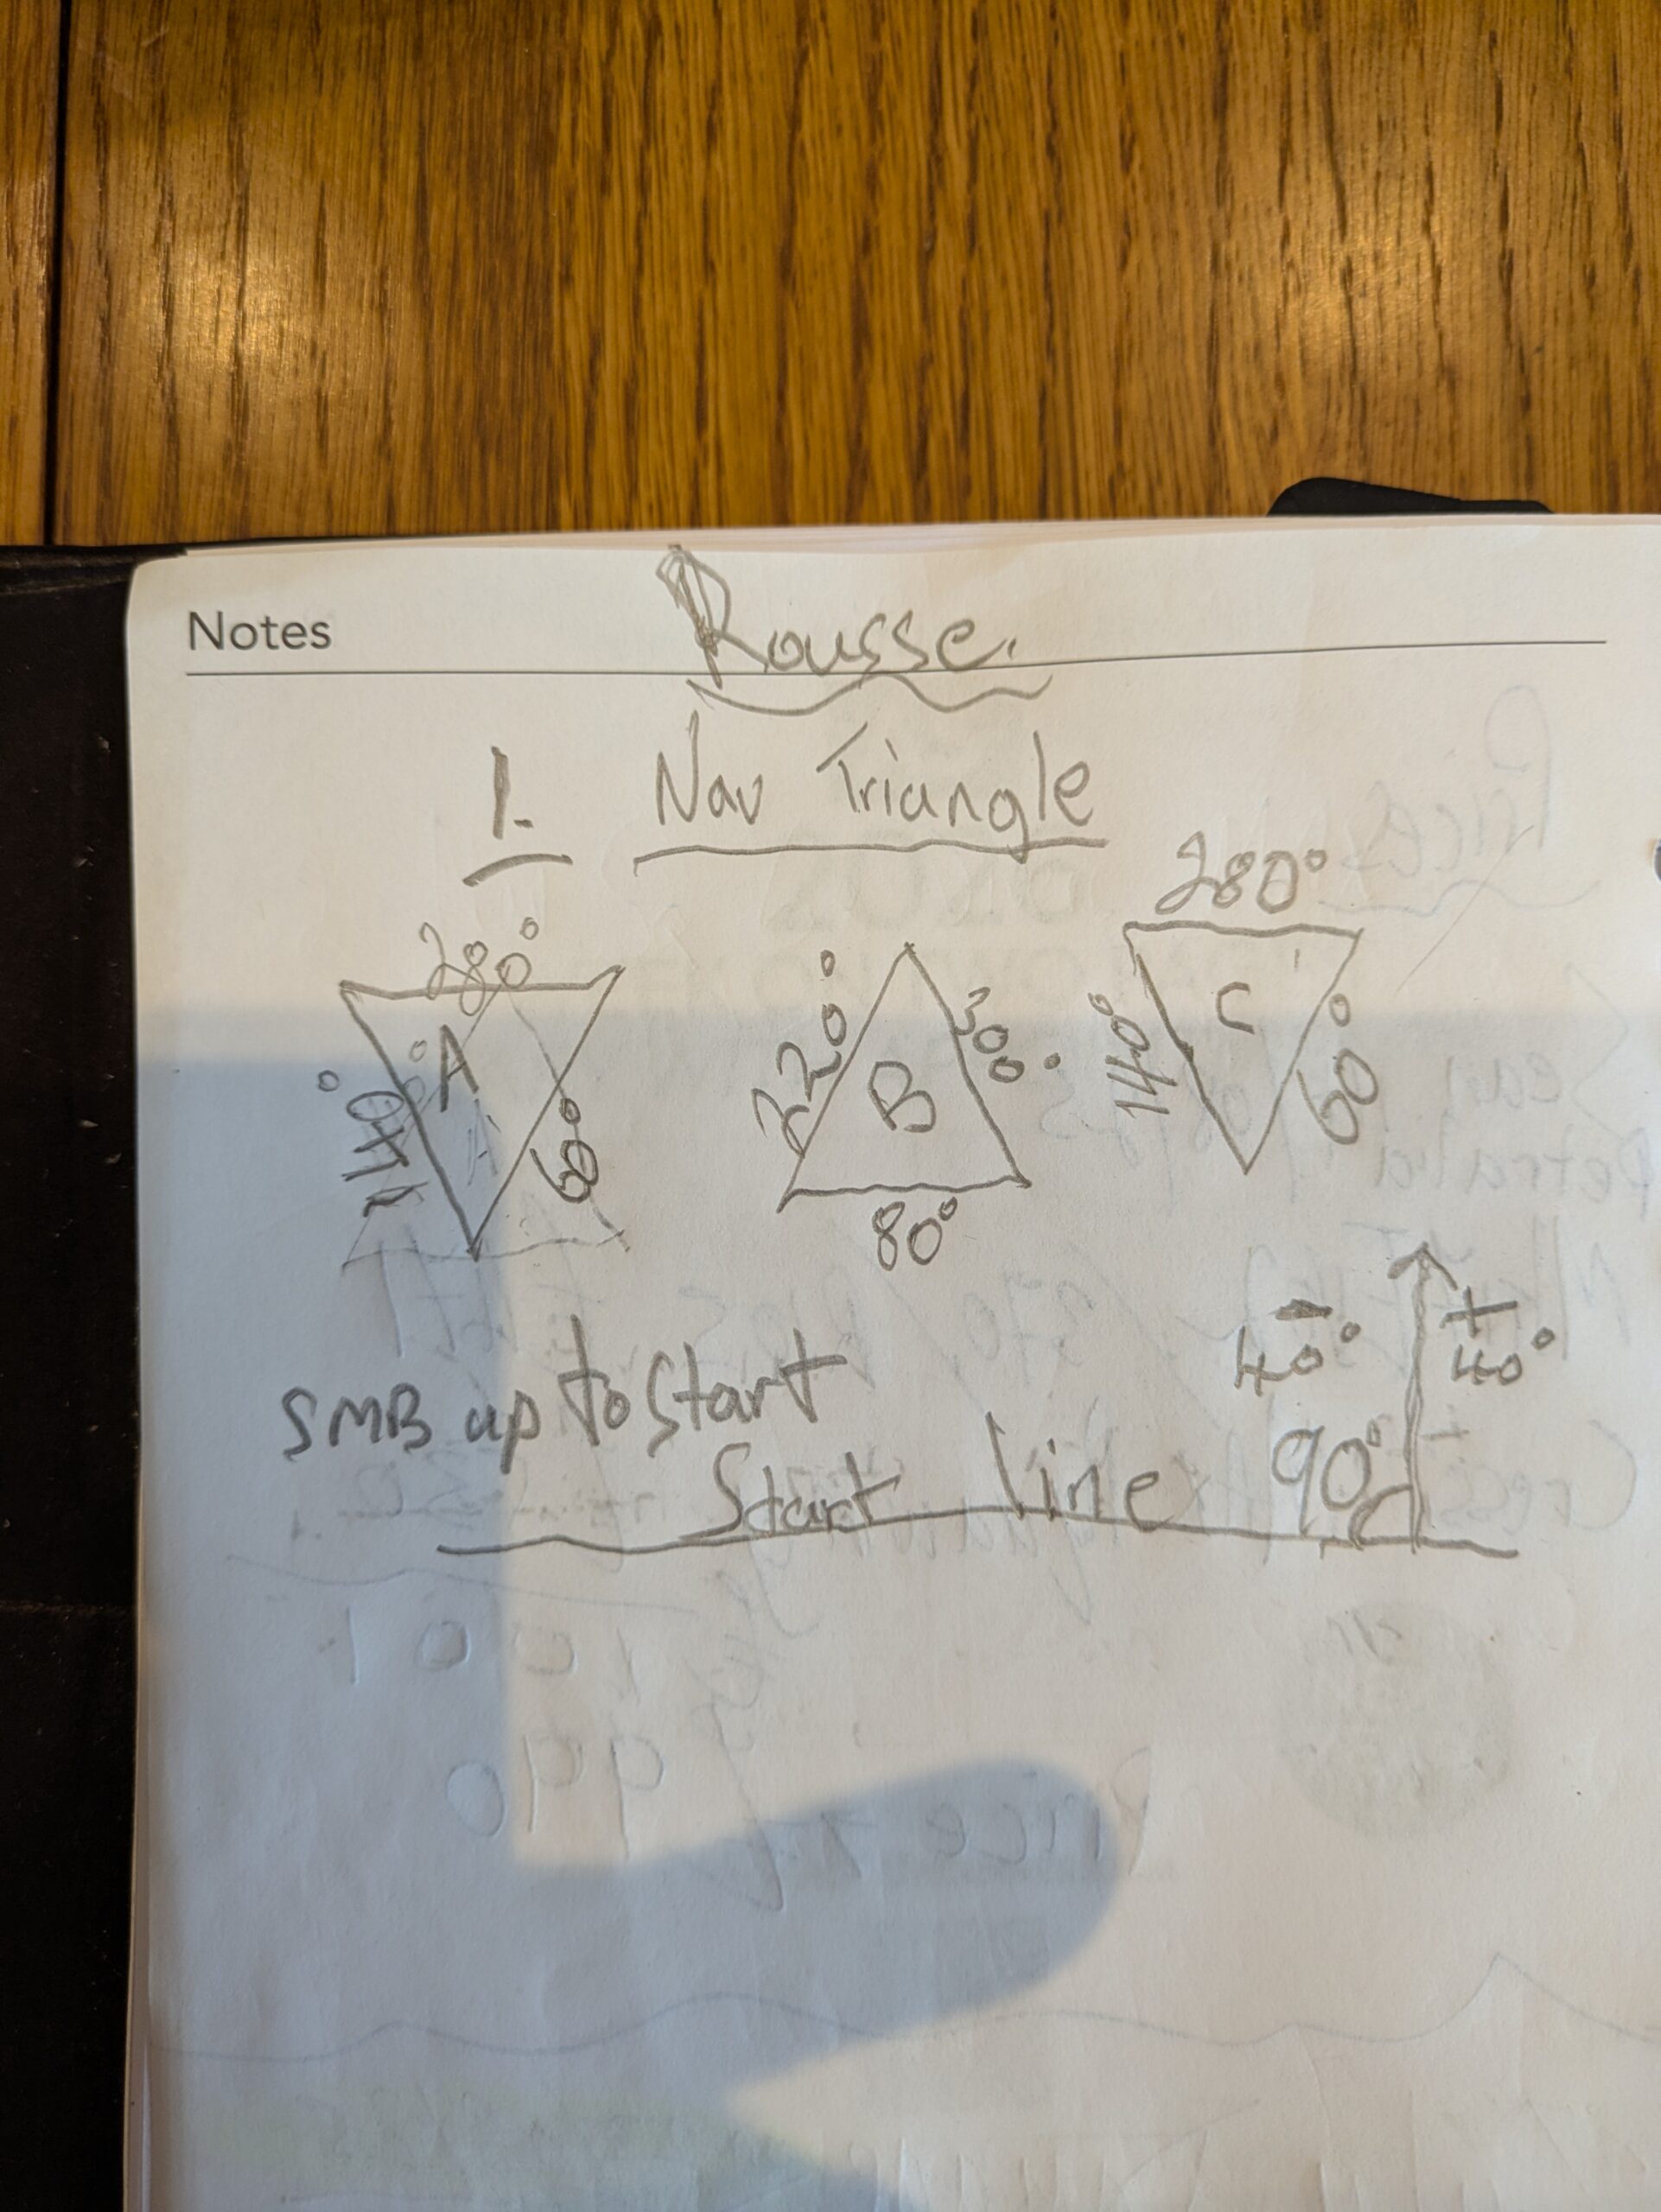 Notes
Rousse.
1. Nav Triangle
280°
A
140°
60°
220°
300°
B
80°
280°
C
140°
60°
SMB up to start
- 40°
+ 40°
90°
Start line